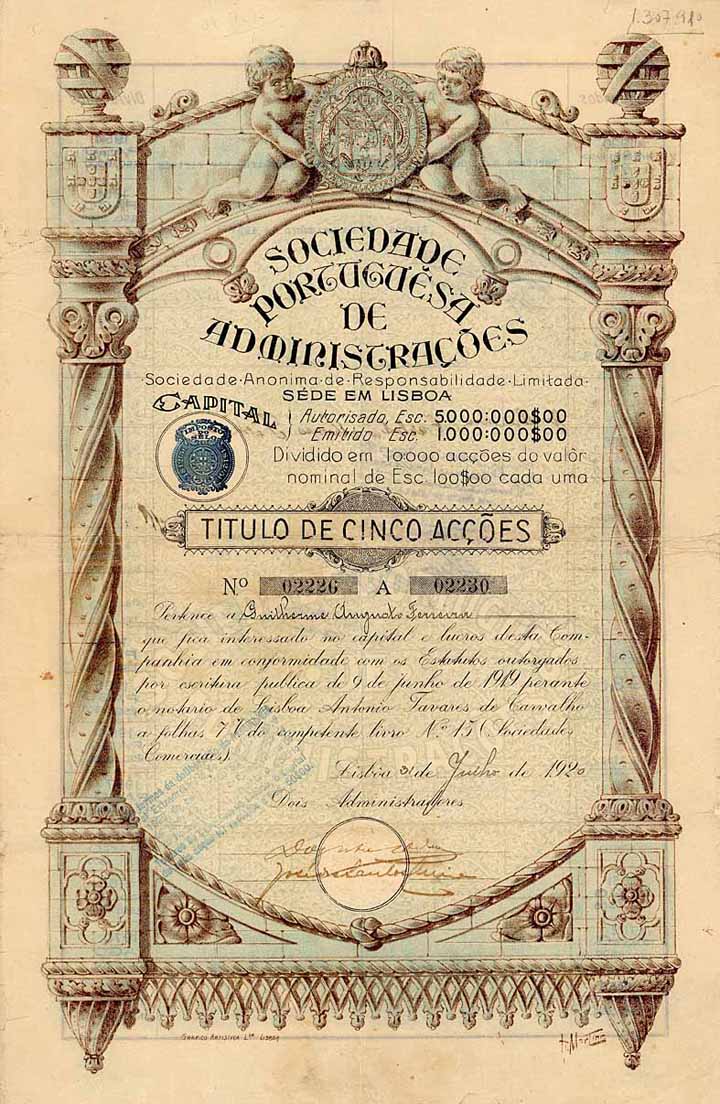 1.307.910
SOCIEDADE
PORTUGUÊSA
DE
ADMINISTRAÇÕES
Sociedade·Anonima·de·Responsabilidade·Limitada·
SÉDE EM LISBOA
CAPITAL
Autorisado, Esc. 5.000:000$00
Emitido Esc. 1.000:000$00
IMPOSTO DO SELO
Dividido em 10.000 acções do valôr
nominal de Esc 100$00 cada uma
TITULO DE CINCO ACÇÕES
Nº 02226 A 02230
Pertence a Guilherme Augusto Ferreira
que fica interessado no capital e lucros desta Com-
panhia em conformidade com os Estatutos outorgados
por escritura publica de 9 de junho de 1919 perante
o notario de Lisboa Antonio Tavares de Carvalho
a folhas 7 do competente livro N.º 15 (Sociedades
Comerciaes).
Lisboa 31 de Julho de 1920
Dois Administradores
GRAFICO ARTISTICA L.DA LISBOA